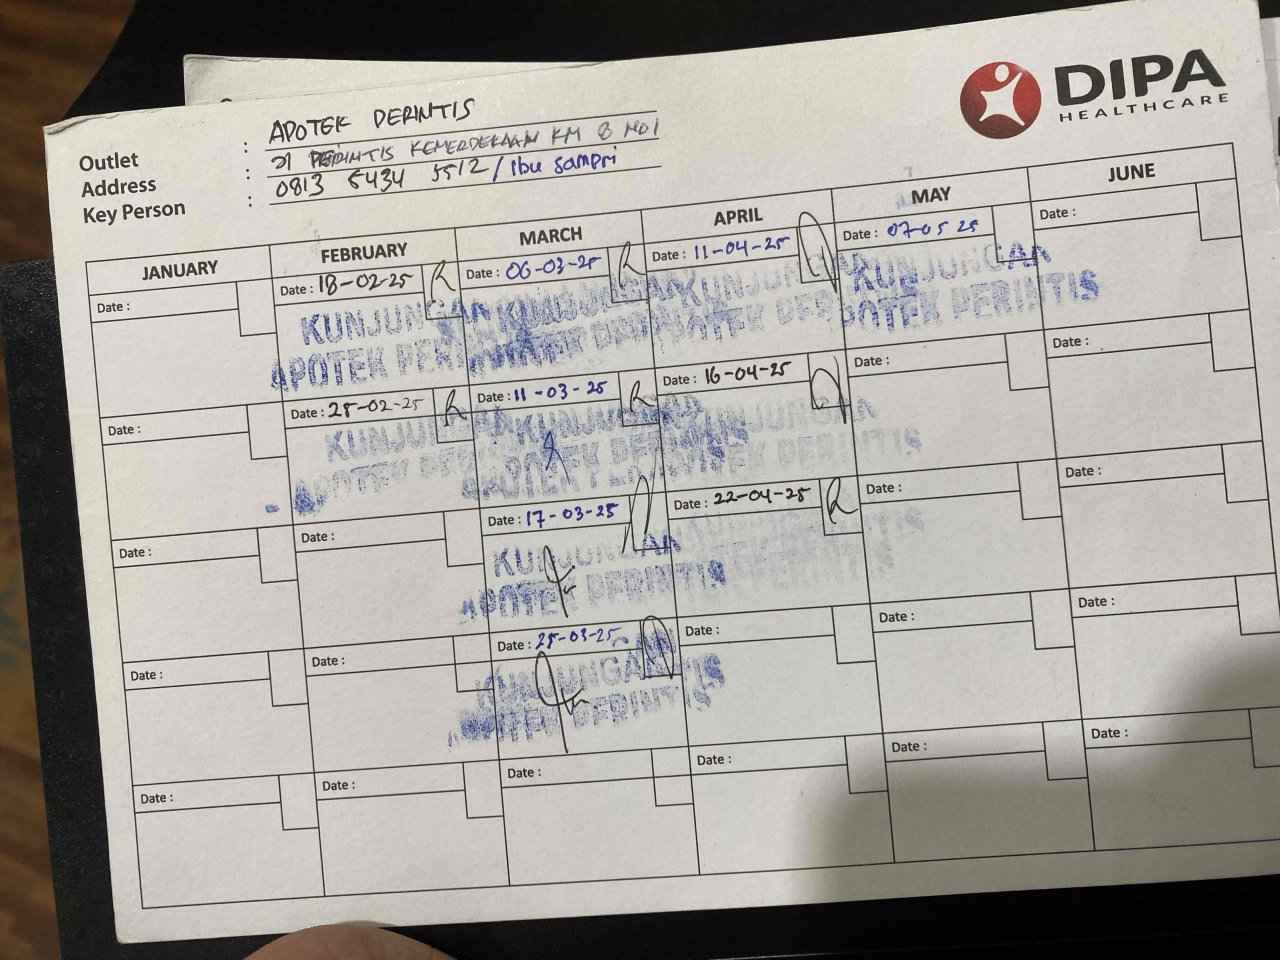 DIPA
HEALTHCARE
Outlet : APOTEK PERINTIS
Address : Jl PERINTIS KEMERDEKAAN KM 8 NO 1
Key Person : 0813 5434 5512 / Ibu Sampri
JANUARY FEBRUARY MARCH APRIL MAY JUNE
Date : Date : 18-02-25 R Date : 06-03-25 R Date : 11-04-25 Date : 07-05 25 Date :
KUNJUNGAN KUNJUNGAN KUNJUNGAN KUNJUNGAN
APOTEK PERINTIS APOTEK PERINTIS APOTEK PERINTIS APOTEK PERINTIS
Date : Date : 25-02-25 R Date : 11-03-25 R Date : 16-04-25 Date : Date :
KUNJUNGAN KUNJUNGAN KUNJUNGAN
APOTEK PERINTIS APOTEK PERINTIS APOTEK PERINTIS
Date : Date : Date : 17-03-25 Date : 22-04-25 R Date : Date :
KUNJUNGAN KUNJUNGAN
APOTEK PERINTIS APOTEK PERINTIS
Date : Date : Date : 25-03-25 Date : Date : Date :
KUNJUNGAN
APOTEK PERINTIS
Date : Date : Date : Date : Date : Date :